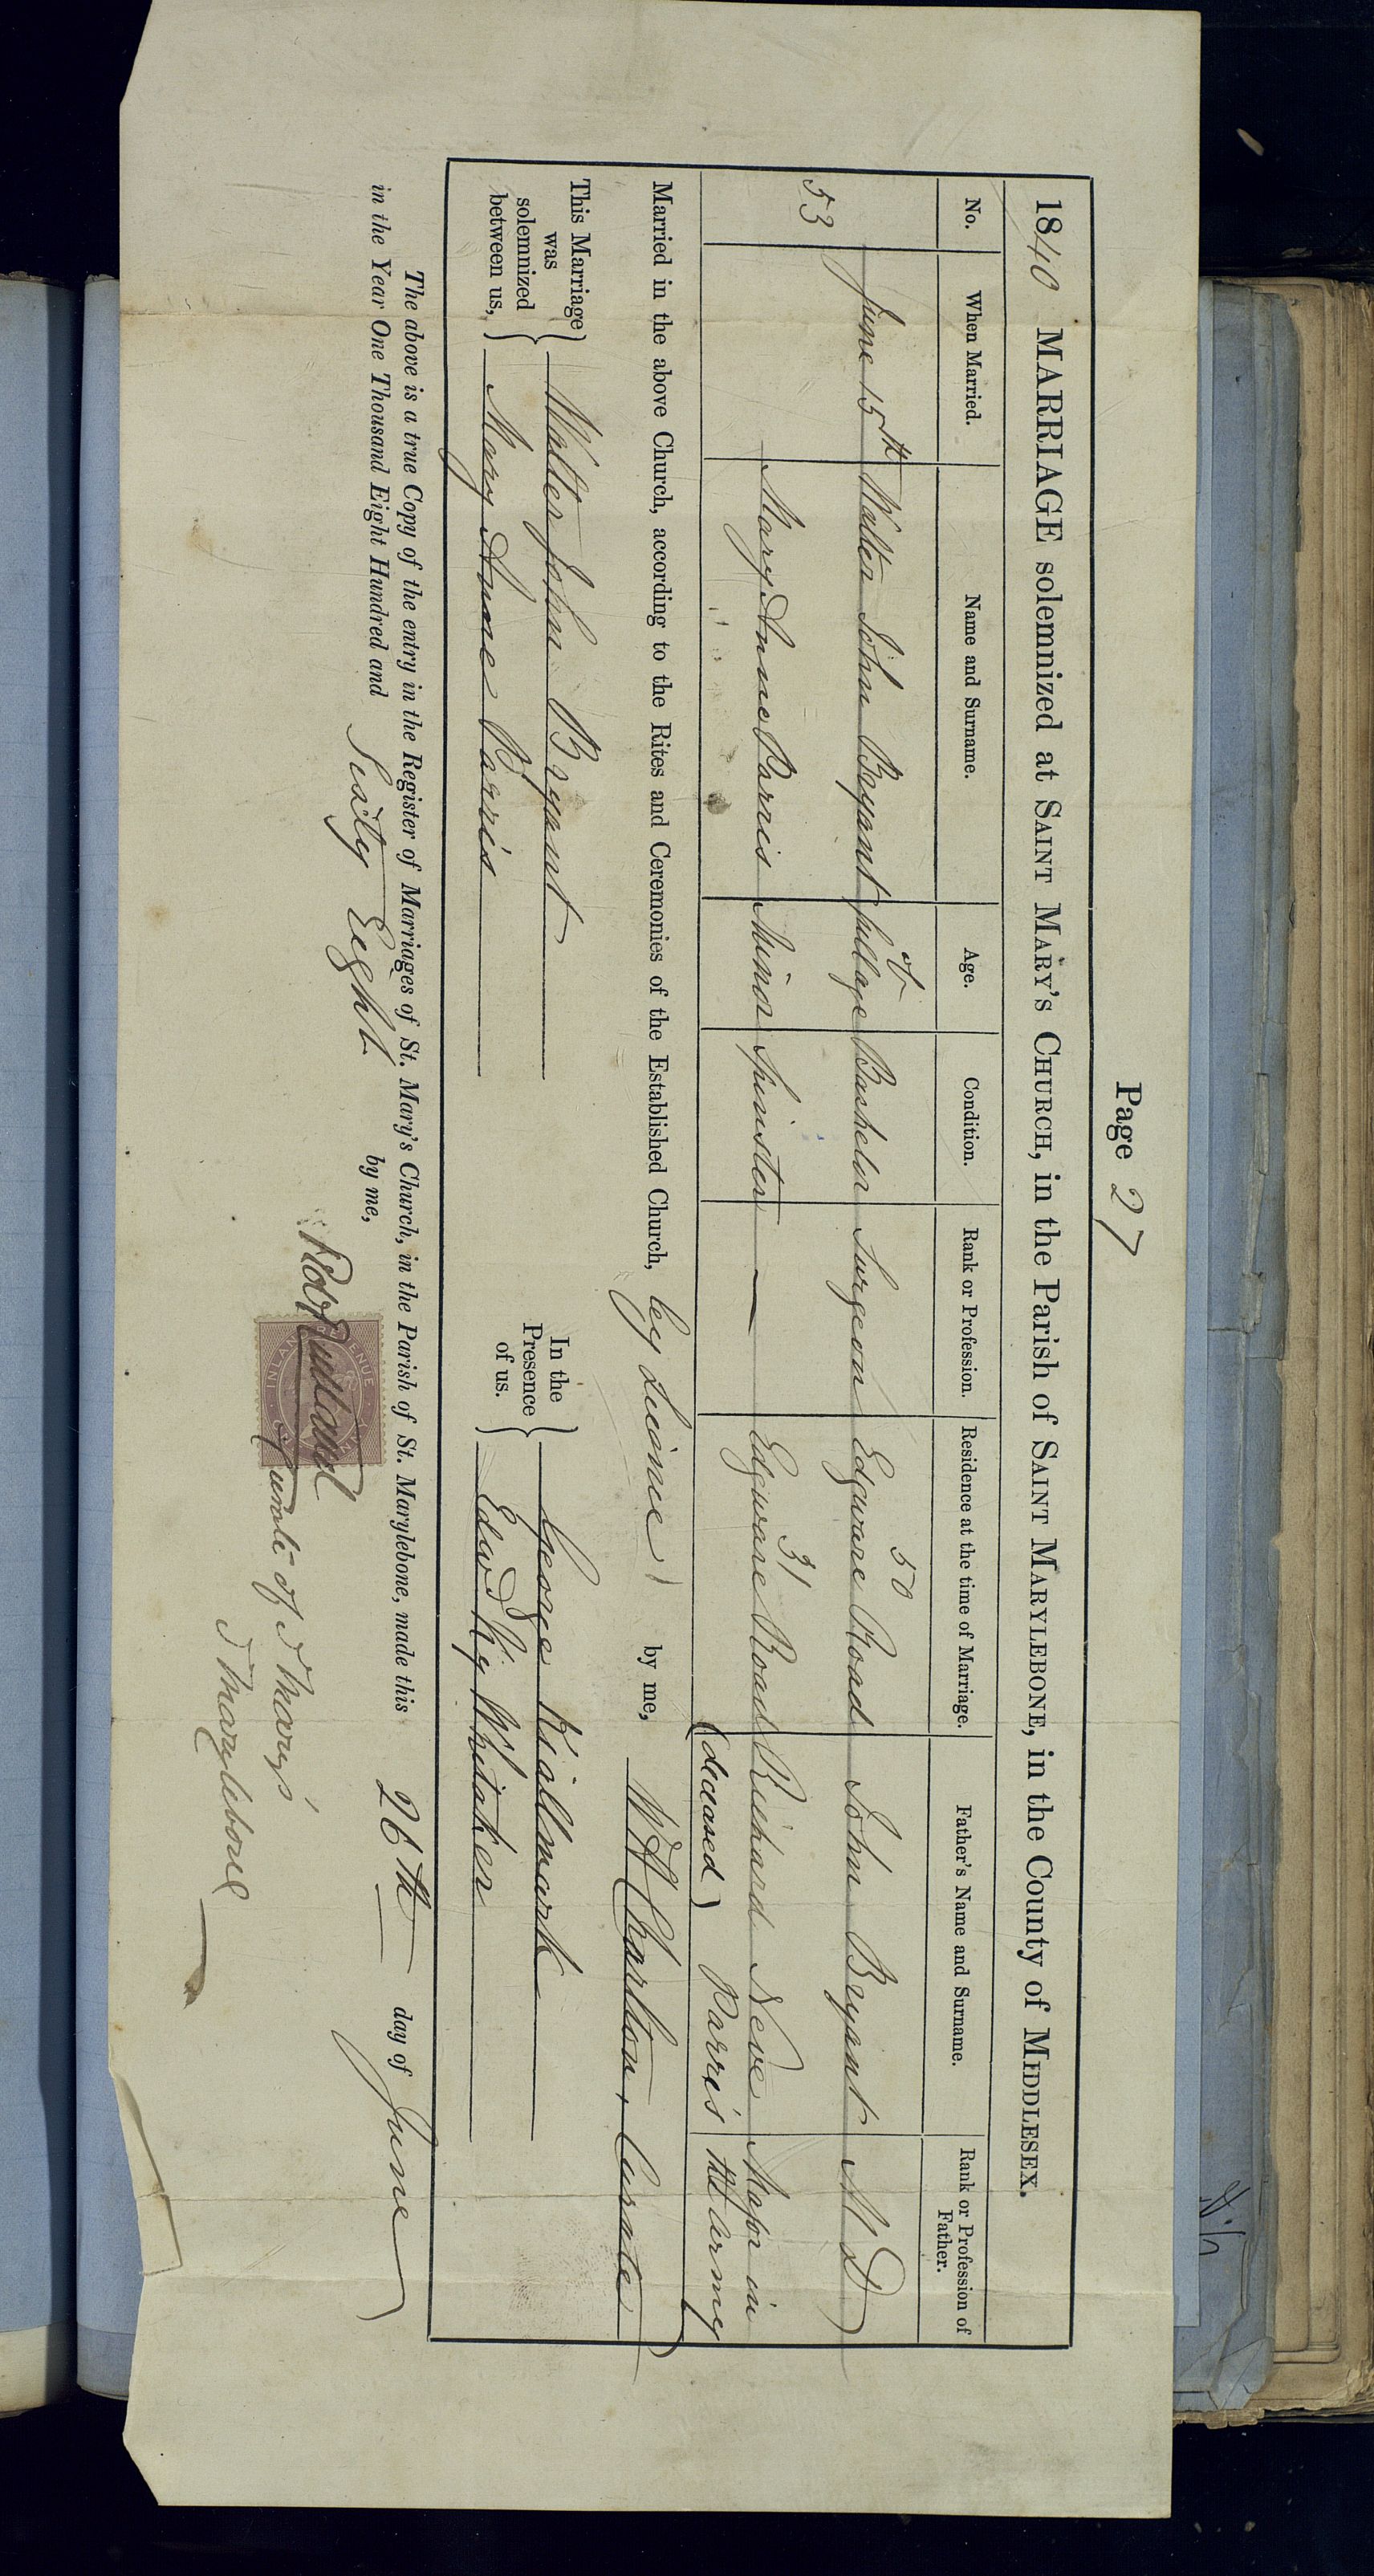 Page 27
1840 MARRIAGE solemnized at SAINT MARY'S CHURCH, in the Parish of SAINT MARYLEBONE, in the County of MIDDLESEX.
No. When Married. Name and Surname. Age. Condition. Rank or Profession. Residence at the time of Marriage. Father's Name and Surname. Rank or Profession of Father.
53 June 15th Walter John Bryant of full age Bachelor Surgeon 50 Edgware Road John Bryant M D
Mary Anne Parris Minor Spinster — 31 Edgware Road Richard Neve Parris (deceased) Major in the Army
Married in the above Church, according to the Rites and Ceremonies of the Established Church, by Licence by me, W A Charlton, Curate
This Marriage was solemnized between us, Walter John Bryant In the Presence of us. George Kiallmark
Mary Anne Parris Edwd Ky Whitaker
The above is a true Copy of the entry in the Register of Marriages of St. Mary's Church, in the Parish of St. Marylebone, made this 26th day of June
in the Year One Thousand Eight Hundred and Sixty Eight by me,
INLAND REVENUE
Curate of St Mary's
St Marylebone